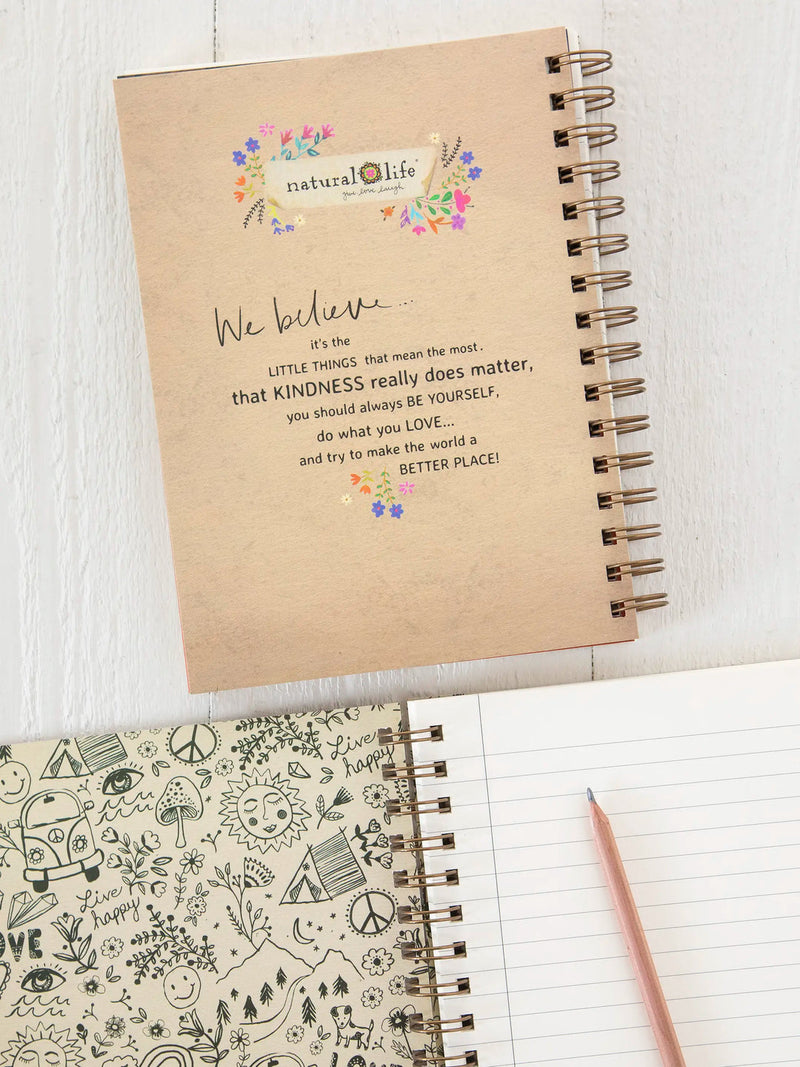 natural life®
give love laugh
We believe...
it's the
LITTLE THINGS that mean the most.
that KINDNESS really does matter,
you should always BE YOURSELF,
do what you LOVE...
and try to make the world a
BETTER PLACE!
Live
happy
Live
happy
OVE